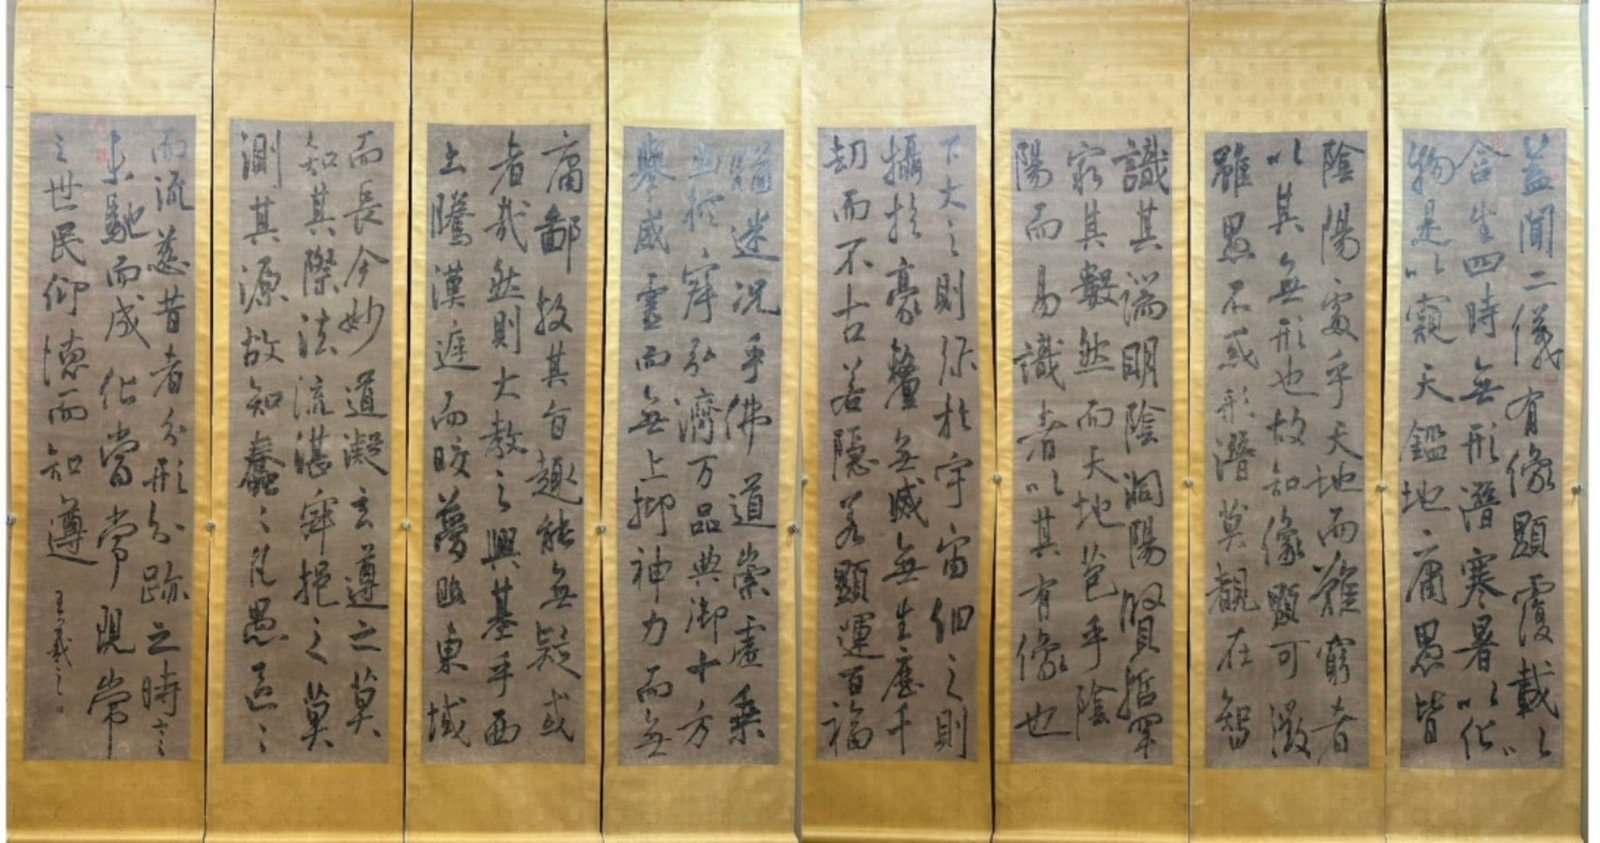 蓋聞二儀有像顯覆載以
含生四時無形潛寒暑以化
物是以窺天鑑地庸愚皆
陰陽處乎天地而難窮者
以其無形也故知像顯可徵
雖愚不惑形潛莫覩在智
識其端明陰洞陽賢哲罕
窮其數然而天地苞乎陰
陽而易識者以其有像也
下大之則彌於宇宙細之則
攝於豪釐無滅無生歷千
劫而不古若隱若顯運百福
猶迷況乎佛道崇虛乘
幽控寂弘濟万品典御十方
舉威靈而無上抑神力而無
庸鄙投其旨趣能無疑或
者哉然則大教之興基乎西
土騰漢庭而皎夢照東域
而長今妙道凝玄遵之莫
知其際法流湛寂挹之莫
測其源故知蠢〻凡愚區〻
而流慈昔者分形分跡之時言
未馳而成化當常現常
之世民仰德而知遵
王羲之